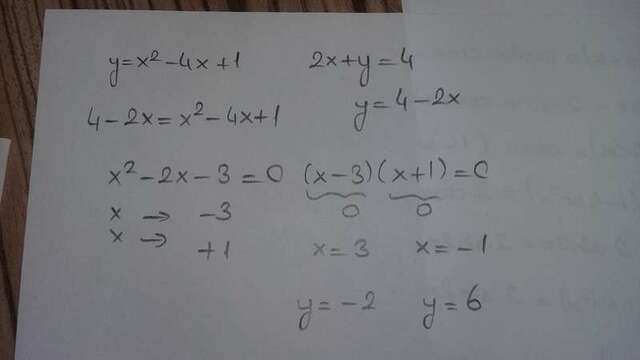 y=x²-4x+1 2x+y=4
4-2x=x²-4x+1 y=4-2x
x²-2x-3=0 (x-3)(x+1)=0
x → -3 0 0
x → +1 x=3 x=-1
y=-2 y=6